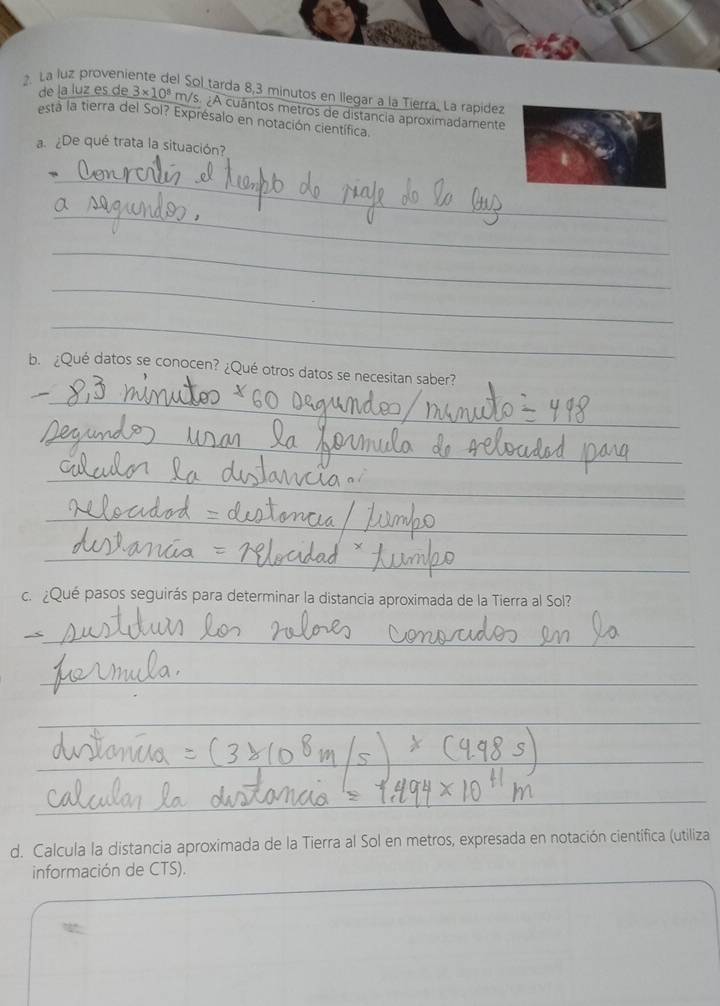 2. La luz proveniente del Sol tarda 8,3 minutos en llegar a la Tierra. La rapidez
de la luz es de 3×10⁸ m/s. ¿A cuántos metros de distancia aproximadamente
está la tierra del Sol? Exprésalo en notación científica.
a. ¿De qué trata la situación?
- Convertir el tiempo de viaje de la luz
a segundos.
b. ¿Qué datos se conocen? ¿Qué otros datos se necesitan saber?
- 8,3 minutos × 60 segundos/minuto = 498
segundos usar la formula de velocidad para
calcular la distancia.
velocidad = distancia / tiempo
distancia = velocidad × tiempo
c. ¿Qué pasos seguirás para determinar la distancia aproximada de la Tierra al Sol?
- sustituir los valores conocidos en la
formula.
distancia = (3×10⁸ m/s) × (4.98 s)
calcular la distancia = 1.494 × 10¹¹ m
d. Calcula la distancia aproximada de la Tierra al Sol en metros, expresada en notación científica (utiliza
información de CTS).